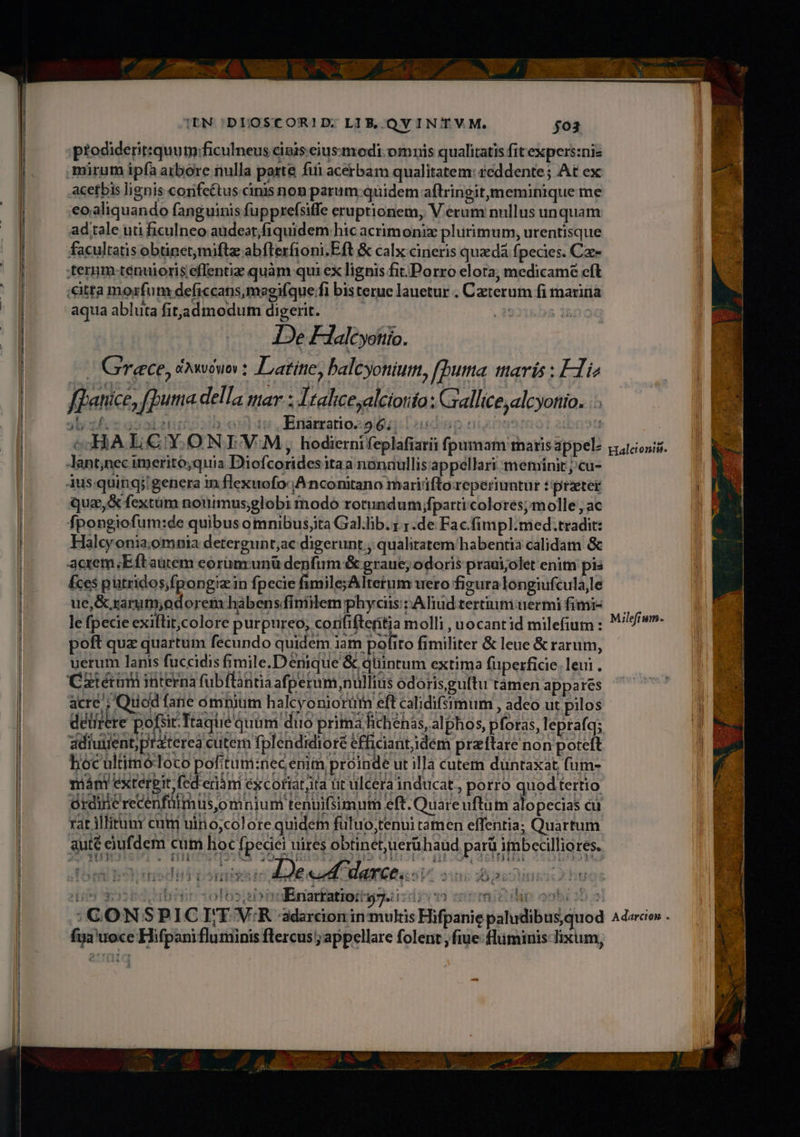 IN DIOSCORID. LIB. QVINTVM. 503
prodiderit:quum ficulneus cinis eius modi omnis qualitatis fit expers:nis
mirum ipſa arbore nulla parte ſui acerbam qualitatem reddente; At ex
acerbis lignis confectus cinis non parum quidem aſtringit,meminique me
eo aliquando ſanguinis ſuppreſsiſſe eruptionem, Verum nullus unquam
ad tale uti ficulneo audeat,ſiquidem hic acrimoniæ plurimum, urentisque
facultatis obtinet,miſtæ abſterſioni. Eſt & calx cineris quædã ſpecies. Cæ-
terum tenuioris eſſentiæ quàm qui ex lignis fit. Porro elota, medicamẽ eſt
citra morſum deſiccans,magiſque ſi bis terue lauetur . Cæterum ſi marina
aqua abluta fit,admodum digerit.
De Halcyonio.
Græce, ἀλκυόνιον : Latine, halcyonium, ſpuma maris : Hiſ
ſpanice, ſpuma della mar : Italice,alcionio : Gallice,alcyonio.
Enarratio. 96.
HALCYONIVM, hodierni ſeplaſiarii ſpumam maris appel- Halcioniũ.
lant,nec imerito,quia Dioſcorides ita a nonnullis appellari meminit, cu-
ius quinq; genera in flexuoſo Anconitano mari iſto reperiuntur : præter
quæ,& ſextum nouimus,globi modo rotundum,ſparti colores, molle , ac
ſpongioſum:de quibus omnibus,ita Gal.lib. 11. de Fac.ſimpl.med.tradit:
Halcyonia omnia detergunt,ac digerunt , qualitatem habentia calidam &
acrem. Eſt autem eorum unũ denſum & graue, odoris praui,olet enim piſ
ſces putridos,ſpongiæ in ſpecie ſimile; Alterum uero figura longiuſcula,le
ue,& rarum,odorem habens ſimilem phyciis : Aliud tertium uermi ſimi-
le ſpecie exiſtit,colore purpureo, conſiſtentia molli , uocant id mileſium : Mileſium.
poſt quæ quartum ſecundo quidem iam poſito ſimiliter & leue & rarum,
uerum lanis ſuccidis ſimile. Denique & quintum extima ſuperficie leui .
Cæterum interna ſubſtantia aſperum,nullius odoris,guſtu tamen appares
acre ; Quod ſane omnium halcyoniorum eſt calidiſsimum , adeo ut pilos
deurere poſsit. Itaque quum duo prima lichenas, alphos, pſoras, lepraſq;
adiuuent,præterea cutem ſplendidiorẽ efficiant,idem præſtare non poteſt
hoc ultimo loco poſitum:nec enim proinde ut illa cutem duntaxat ſum-
mam extergit,ſed etiam excoriat,ita ut ulcera inducat , porro quod tertio
ordine recenſuimus,omnium tenuiſsimum eſt. Quare uſtum alopecias cu
rat illitum cum uino,colore quidem fuluo,tenui tamen eſſentia; Quartum
autẽ eiuſdem cum hoc ſpeciei uires obtinet,uerũ haud parũ imbecilliores.
De darce.
Enarratio. 97.
CONSPICITVR adarcion in multis Hiſpanie paludibus,quod Adarcion .
ſua uoce Hiſpani fluminis ſtercus , appellare ſolent , ſiue fluminis lixum,